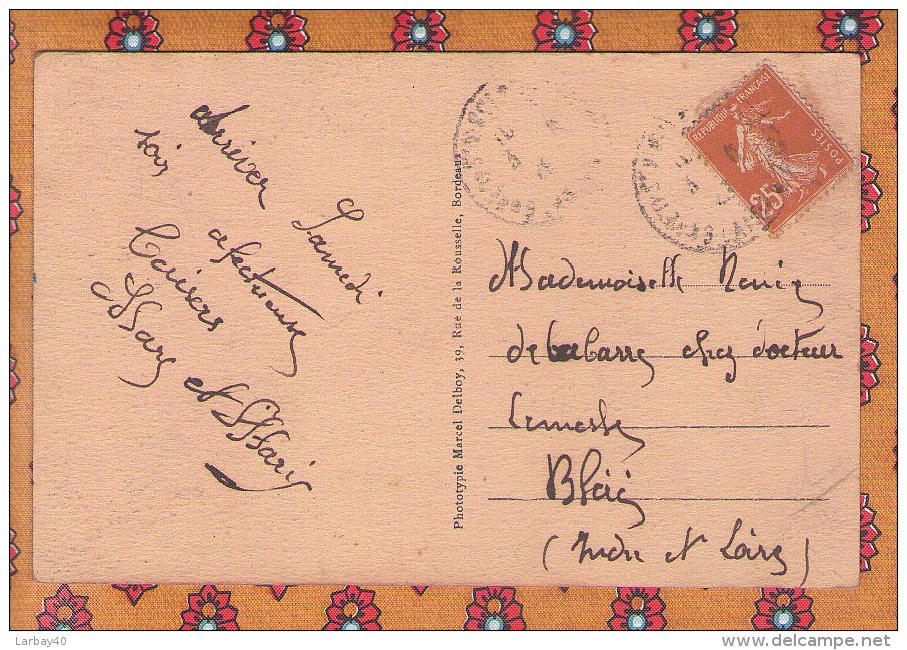 Arriver Samedi
soir afectueux
Baisers
Marc et Marie
Phototypie Marcel Delboy, 39, Rue de la Rousselle, Bordeaux
REPUBLIQUE FRANÇAISE
POSTES
25
Mademoiselle
delabarre chez docteur
Lemesle
Bléré
(Indre et Loire)
Larbay40
www.delcampe.net